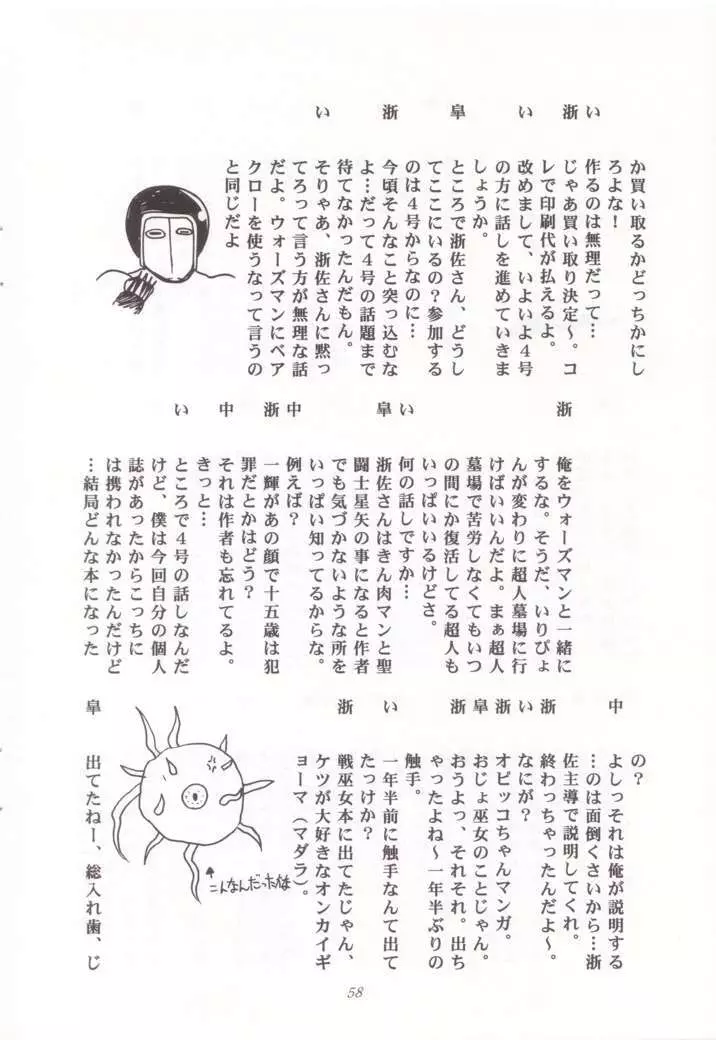 か買い取るかどっちかにし
ろよな！
い 作るのは無理だって…
浙 じゃあ買い取り決定～。コ
レで印刷代が払えるよ。
い 改めまして、いよいよ４号
の方に話しを進めていきま
しょうか。
皐 ところで浙佐さん、どうし
てここにいるの？参加する
のは４号からなのに…
浙 今頃そんなこと突っ込むな
よ…だって４号の話題まで
待てなかったんだもん。
い そりゃあ、浙佐さんに黙っ
てろって言う方が無理な話
だよ。ウォーズマンにベア
クローを使うなって言うの
と同じだよ
浙 俺をウォーズマンと一緒に
するな。そうだ、いりぴょ
んが変わりに超人墓場に行
けばいいんだよ。まぁ超人
墓場で苦労しなくてもいつ
の間にか復活してる超人も
いっぱいいるけどさ。
い 何の話しですか…
皐 浙佐さんはきん肉マンと聖
闘士星矢の事になると作者
でも気づかないような所を
いっぱい知ってるからな。
中 例えば？
浙 一輝があの顔で十五歳は犯
罪だとかはどう？
中 それは作者も忘れてるよ。
きっと…
い ところで４号の話しなんだ
けど、僕は今回自分の個人
誌があったからこっちに
は携われなかったんだけど
…結局どんな本になった
の？
中 よしっそれは俺が説明する
…のは面倒くさいから…浙
佐主導で説明してくれ。
浙 終わっちゃったんだよ～。
い なにが？
浙 オビッコちゃんマンガ。
皐 おじょ巫女のことじゃん。
浙 おうよっ、それそれ。出ち
ゃったよね～一年半ぶりの
触手。
い 一年半前に触手なんて出て
たっけか？
浙 戦巫女本に出てたじゃん、
ケツが大好きなオンカイギ
ョーマ（マダラ）。
皐 出てたねー、総入れ歯、じ
こんなんだったよね
58